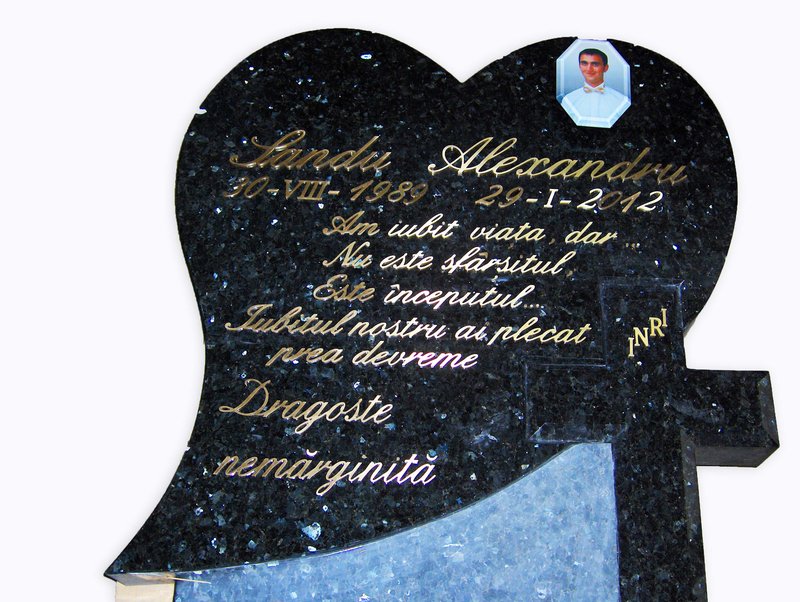 Sandu Alexandru
30-VIII-1989 29-I-2012
Am iubit viața, dar...
Nu este sfârșitul,
Este începutul...
Iubitul nostru ai plecat
prea devreme
Dragoste
nemărginită
INRI